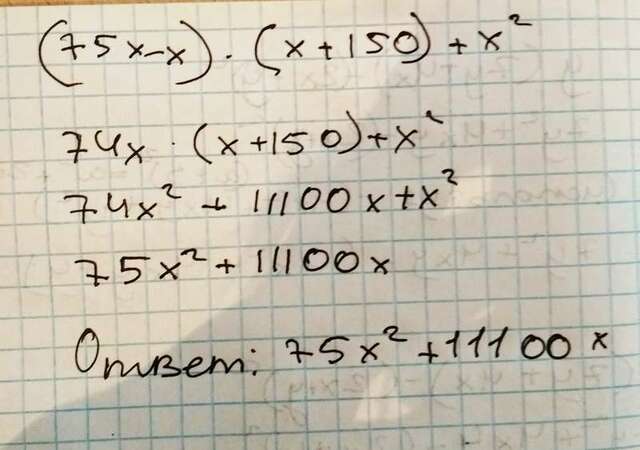 (75x-x)·(x+150)+x²
74x·(x+150)+x²
74x²+11100x+x²
75x²+11100x
Ответ: 75x²+11100x